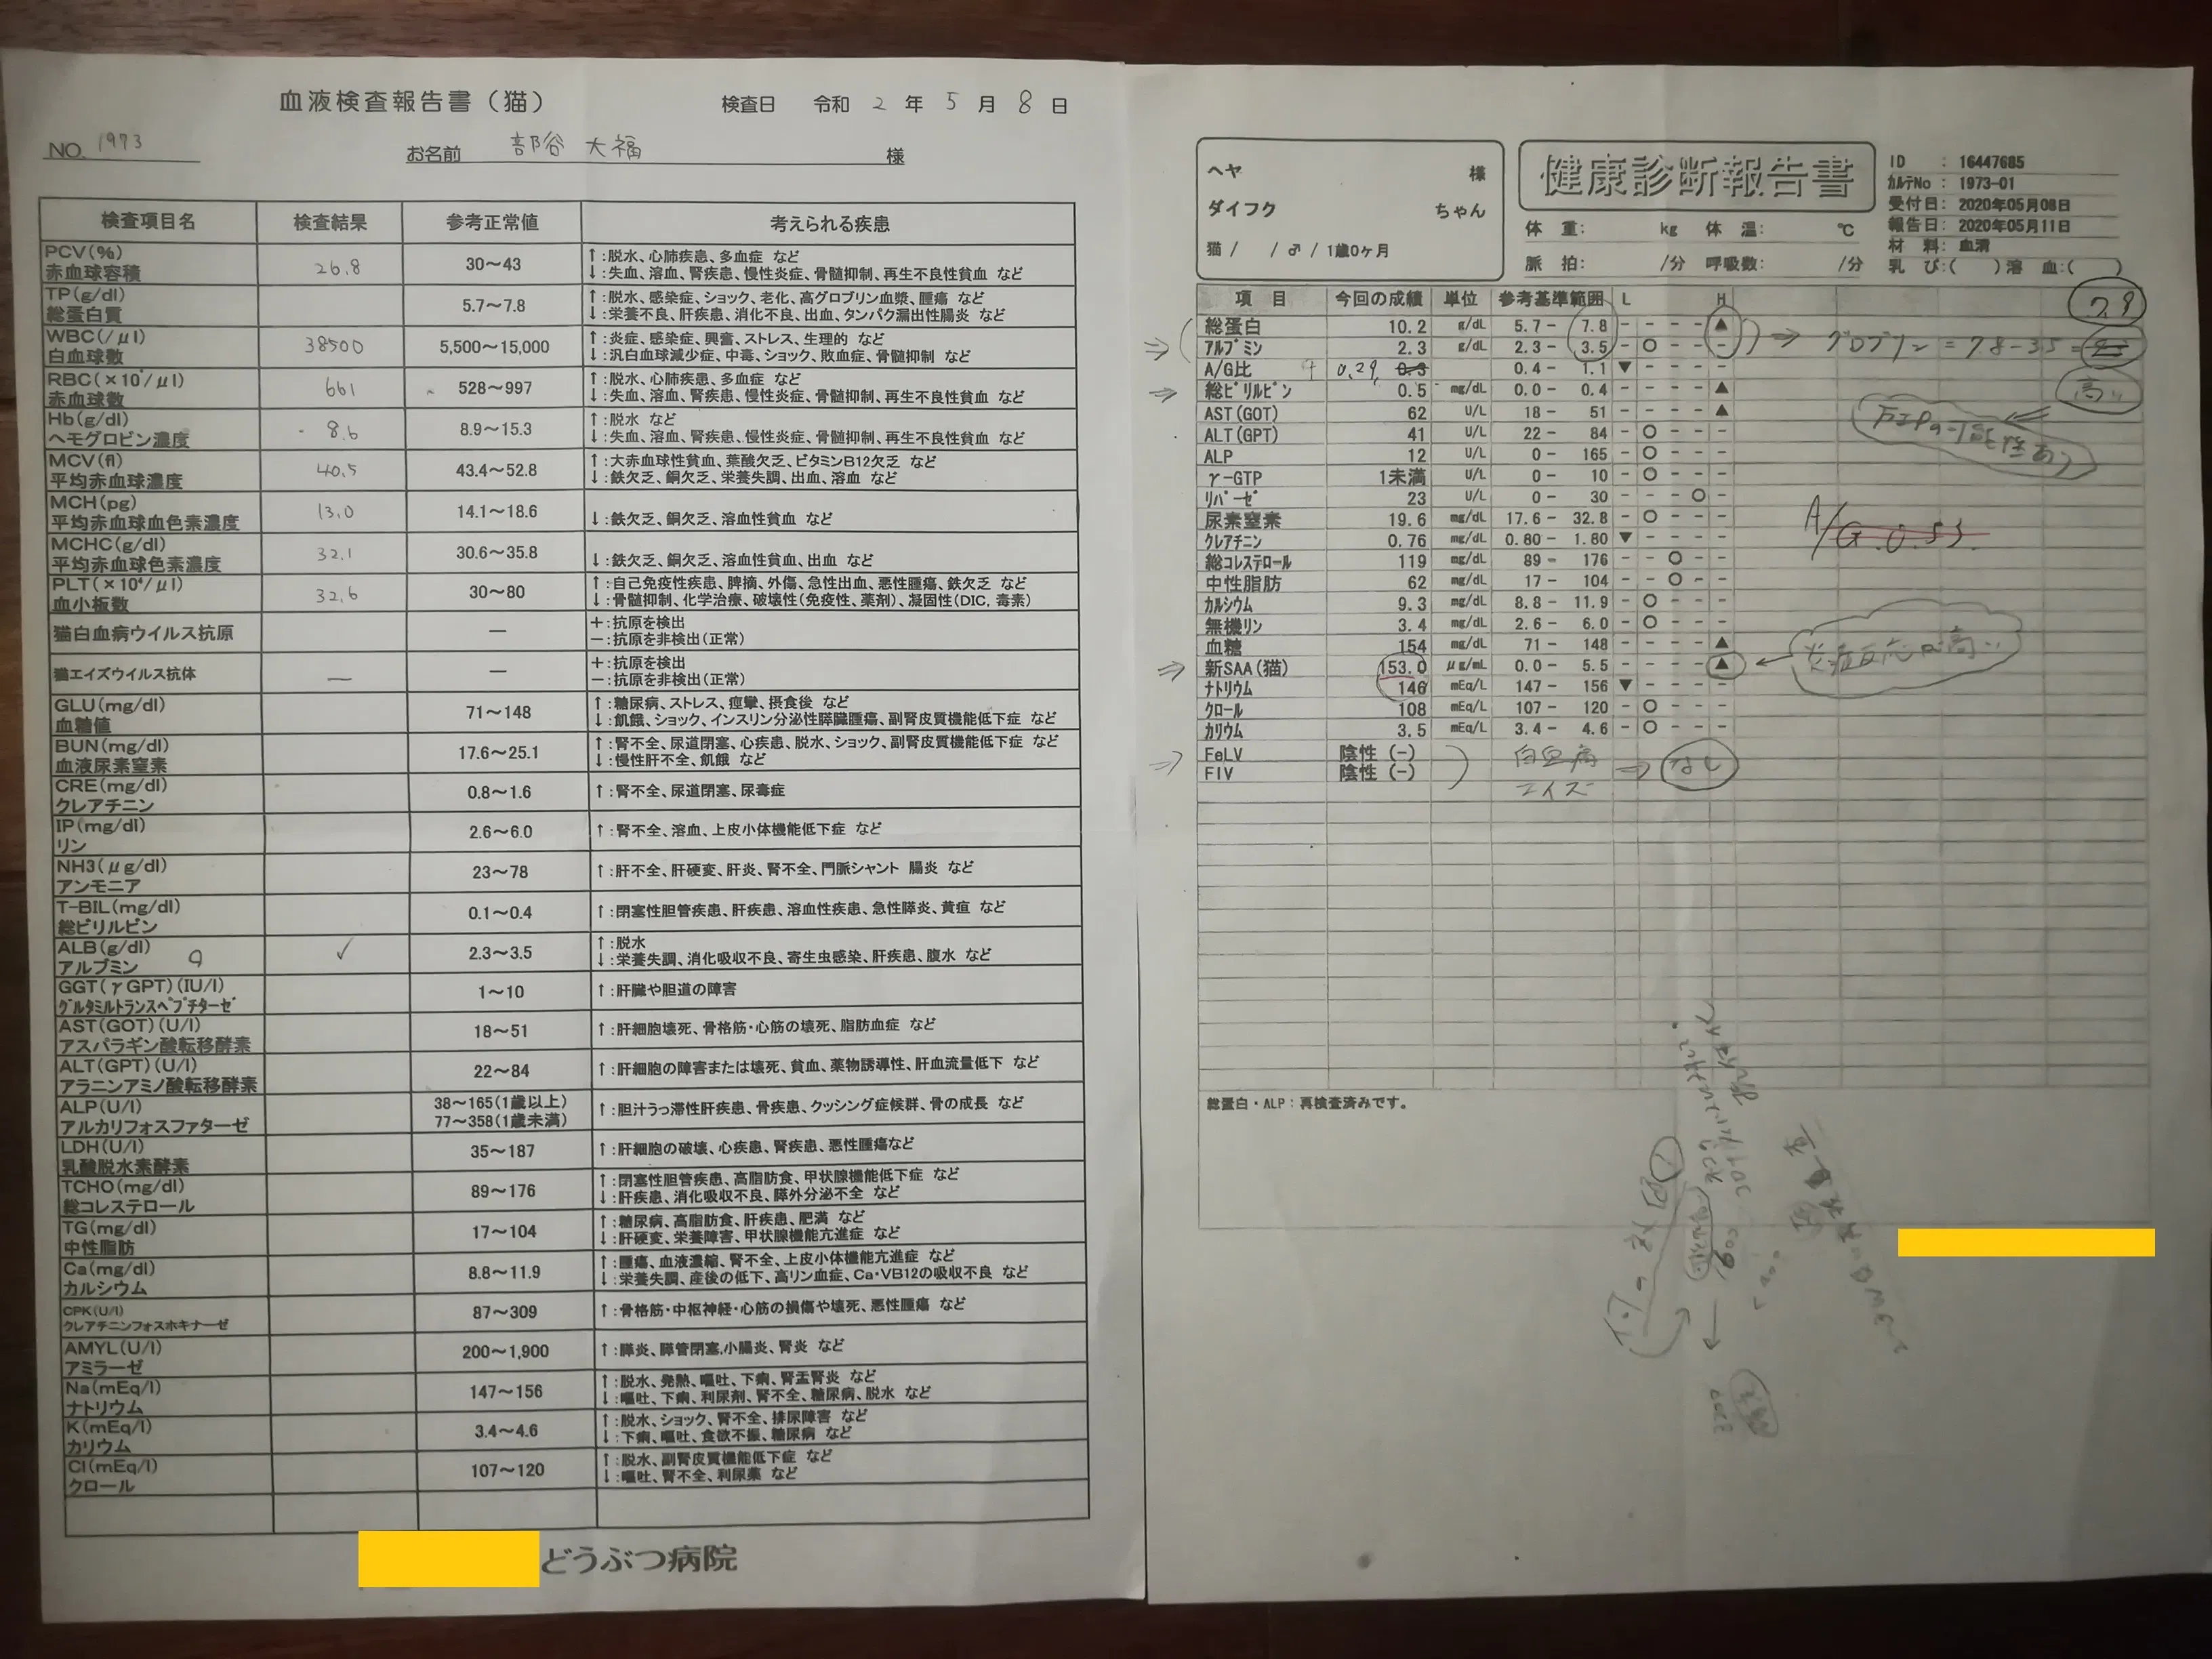 血液検査報告書（猫）
検査日 令和 2 年 5 月 8 日
NO. 1973
お名前 部谷 大福 様
検査項目名 検査結果 参考正常値 考えられる疾患
PCV(%) ↑:脱水、心肺疾患、多血症 など
赤血球容積 26.8 30～43 ↓:失血、溶血、腎疾患、慢性炎症、骨髄抑制、再生不良性貧血 など
TP(g/dl) ↑:脱水、感染症、ショック、老化、高グロブリン血漿、腫瘍 など
総蛋白質 5.7～7.8 ↓:栄養不良、肝疾患、消化不良、出血、タンパク漏出性腸炎 など
WBC(/μl) ↑:炎症、感染症、興奮、ストレス、生理的 など
白血球数 38500 5,500～15,000 ↓:汎白血球減少症、中毒、ショック、敗血症、骨髄抑制 など
RBC(×10⁴/μl) ↑:脱水、心肺疾患、多血症 など
赤血球数 661 528～997 ↓:失血、溶血、腎疾患、慢性炎症、骨髄抑制、再生不良性貧血 など
Hb(g/dl) ↑:脱水 など
ヘモグロビン濃度 8.6 8.9～15.3 ↓:失血、溶血、腎疾患、慢性炎症、骨髄抑制、再生不良性貧血 など
MCV(fl) ↑:大赤血球性貧血、葉酸欠乏、ビタミンB12欠乏 など
平均赤血球濃度 40.5 43.4～52.8 ↓:鉄欠乏、銅欠乏、栄養失調、出血、溶血 など
MCH(pg)
平均赤血球血色素濃度 13.0 14.1～18.6 ↓:鉄欠乏、銅欠乏、溶血性貧血 など
MCHC(g/dl)
平均赤血球色素濃度 32.1 30.6～35.8 ↓:鉄欠乏、銅欠乏、溶血性貧血、出血 など
PLT(×10⁴/μl) ↑:自己免疫性疾患、脾摘、外傷、急性出血、悪性腫瘍、鉄欠乏 など
血小板数 32.6 30～80 ↓:骨髄抑制、化学治療、破壊性(免疫性、薬剤)、凝固性(DIC, 毒素)
猫白血病ウイルス抗原 － ＋:抗原を検出
－:抗原を非検出(正常)
猫エイズウイルス抗体 － － ＋:抗原を検出
－:抗原を非検出(正常)
GLU(mg/dl) ↑:糖尿病、ストレス、痙攣、摂食後 など
血糖値 71～148 ↓:飢餓、ショック、インスリン分泌性膵臓腫瘍、副腎皮質機能低下症 など
BUN(mg/dl) ↑:腎不全、尿道閉塞、心疾患、脱水、ショック、副腎皮質機能低下症 など
血液尿素窒素 17.6～25.1 ↓:慢性肝不全、飢餓 など
CRE(mg/dl)
クレアチニン 0.8～1.6 ↑:腎不全、尿道閉塞、尿毒症
IP(mg/dl)
リン 2.6～6.0 ↑:腎不全、溶血、上皮小体機能低下症 など
NH3(μg/dl)
アンモニア 23～78 ↑:肝不全、肝硬変、肝炎、腎不全、門脈シャント 腸炎 など
T-BIL(mg/dl)
総ビリルビン 0.1～0.4 ↑:閉塞性胆管疾患、肝疾患、溶血性疾患、急性膵炎、黄疸 など
ALB(g/dl) ✓ ↑:脱水
アルブミン 2.3～3.5 ↓:栄養失調、消化吸収不良、寄生虫感染、肝疾患、腹水 など
GGT(γGPT)(IU/l)
グルタミルトランスペプチターゼ 1～10 ↑:肝臓や胆道の障害
AST(GOT)(U/l)
アスパラギン酸転移酵素 18～51 ↑:肝細胞壊死、骨格筋・心筋の壊死、脂肪血症 など
ALT(GPT)(U/l)
アラニンアミノ酸転移酵素 22～84 ↑:肝細胞の障害または壊死、貧血、薬物誘導性、肝血流量低下 など
ALP(U/l) 38～165(1歳以上)
アルカリフォスファターゼ 77～358(1歳未満) ↑:胆汁うっ滞性肝疾患、骨疾患、クッシング症候群、骨の成長 など
LDH(U/l)
乳酸脱水素酵素 35～187 ↑:肝細胞の破壊、心疾患、腎疾患、悪性腫瘍など
TCHO(mg/dl) ↑:閉塞性胆管疾患、高脂肪食、甲状腺機能低下症 など
総コレステロール 89～176 ↓:肝疾患、消化吸収不良、膵外分泌不全 など
TG(mg/dl) ↑:糖尿病、高脂肪食、肝疾患、肥満 など
中性脂肪 17～104 ↓:肝硬変、栄養障害、甲状腺機能亢進症 など
Ca(mg/dl) ↑:腫瘍、血液濃縮、腎不全、上皮小体機能亢進症 など
カルシウム 8.8～11.9 ↓:栄養失調、産後の低下、高リン血症、Ca・VB12の吸収不良 など
CPK(U/l)
クレアチニンフォスホキナーゼ 87～309 ↑:骨格筋・中枢神経・心筋の損傷や壊死、悪性腫瘍 など
AMYL(U/l)
アミラーゼ 200～1,900 ↑:膵炎、膵管閉塞,小腸炎、腎炎 など
Na(mEq/l) ↑:脱水、発熱、嘔吐、下痢、腎盂腎炎 など
ナトリウム 147～156 ↓:嘔吐、下痢、利尿剤、腎不全、糖尿病、脱水 など
K(mEq/l) ↑:脱水、ショック、腎不全、排尿障害 など
カリウム 3.4～4.6 ↓:下痢、嘔吐、食欲不振、糖尿病 など
Cl(mEq/l) ↑:脱水、副腎皮質機能低下症 など
クロール 107～120 ↓:嘔吐、腎不全、利尿薬 など
どうぶつ病院
ヘヤ 様
ダイフク ちゃん
猫 / / ♂ / 1歳0ヶ月
健康診断報告書
体 重: kg 体 温: ℃
脈 拍: /分 呼吸数: /分
ID : 16447685
カルテNo : 1973-01
受付日: 2020年05月08日
報告日: 2020年05月11日
材 料: 血清
乳 び:( ) 溶 血:( )
項 目 今回の成績 単位 参考基準範囲 L H
7.9
総蛋白 10.2 g/dL 5.7 - 7.8 - - - - ▲
アルブミン 2.3 g/dL 2.3 - 3.5 - ○ - - - ⇒ グロブリン = 7.8-3.5 =
A/G比 0.29 0.3 0.4 - 1.1 ▼ - - - -
総ビリルビン 0.5 mg/dL 0.0 - 0.4 - - - - ▲ 高い
AST(GOT) 62 U/L 18 - 51 - - - - ▲
FIPの可能性あり
ALT(GPT) 41 U/L 22 - 84 - ○ - - -
ALP 12 U/L 0 - 165 - ○ - - -
γ-GTP 1未満 U/L 0 - 10 - ○ - - -
リパーゼ 23 U/L 0 - 30 - - - ○ -
尿素窒素 19.6 mg/dL 17.6 - 32.8 - ○ - - -
A/G 0.53
クレアチニン 0.76 mg/dL 0.80 - 1.80 ▼ - - - -
総コレステロール 119 mg/dL 89 - 176 - - ○ - -
中性脂肪 62 mg/dL 17 - 104 - - ○ - -
カルシウム 9.3 mg/dL 8.8 - 11.9 - ○ - - -
無機リン 3.4 mg/dL 2.6 - 6.0 - ○ - - -
血糖 154 mg/dL 71 - 148 - - - - ▲
新SAA(猫) 153.0 μg/mL 0.0 - 5.5 - - - - ▲ ← 炎症反応が高い
ナトリウム 146 mEq/L 147 - 156 ▼ - - - -
クロール 108 mEq/L 107 - 120 - ○ - - -
カリウム 3.5 mEq/L 3.4 - 4.6 - ○ - - -
FeLV 陰性 (-) 白血病
FIV 陰性 (-) エイズ ⇒ なし
総蛋白・ALP：再検査済みです。